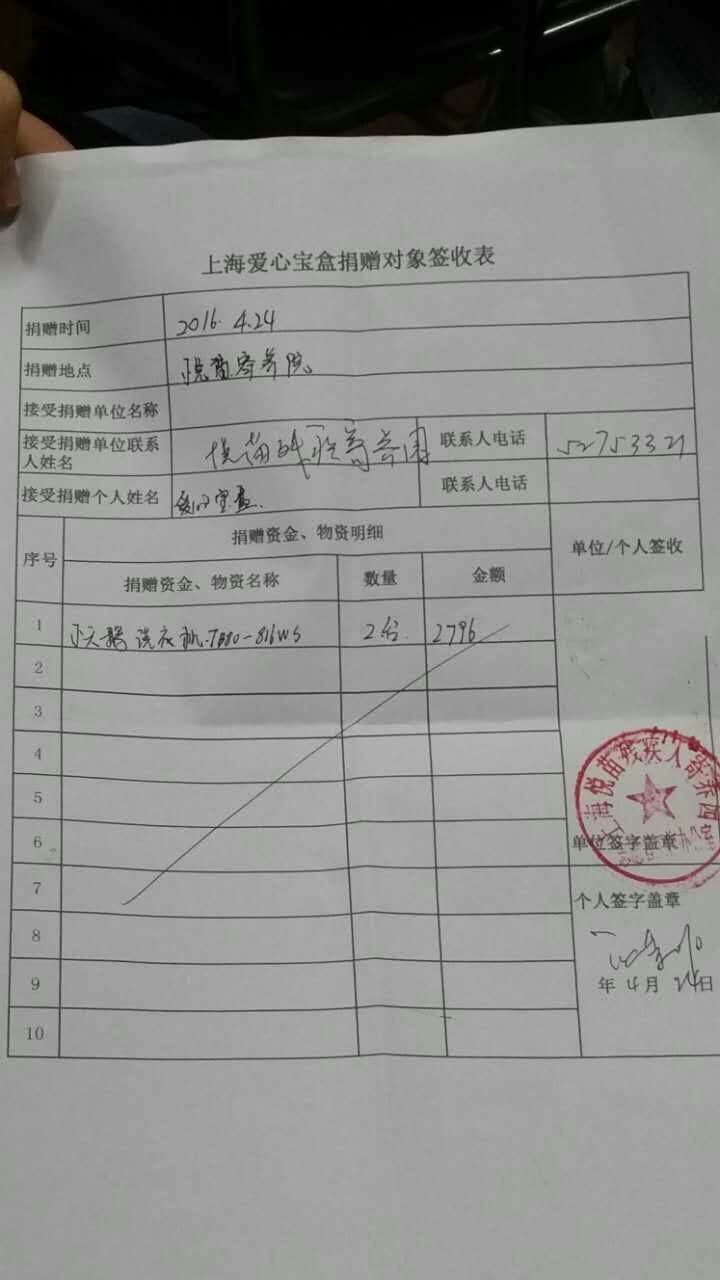 上海爱心宝盒捐赠对象签收表
捐赠时间 2016. 4.24
捐赠地点 悦苗寄养院
接受捐赠单位名称
接受捐赠单位联系人姓名 悦苗残疾人寄养园 联系人电话 52753321
接受捐赠个人姓名 爱心宝盒 联系人电话
序号 捐赠资金、物资明细 单位/个人签收
捐赠资金、物资名称 数量 金额
1 小天鹅洗衣机 TB80-816WS 2台 2796
2
3
4
5
6
7
8
9
10
上海悦苗残疾人寄养园
办公室
单位签字盖章
个人签字盖章
年 4月 24日